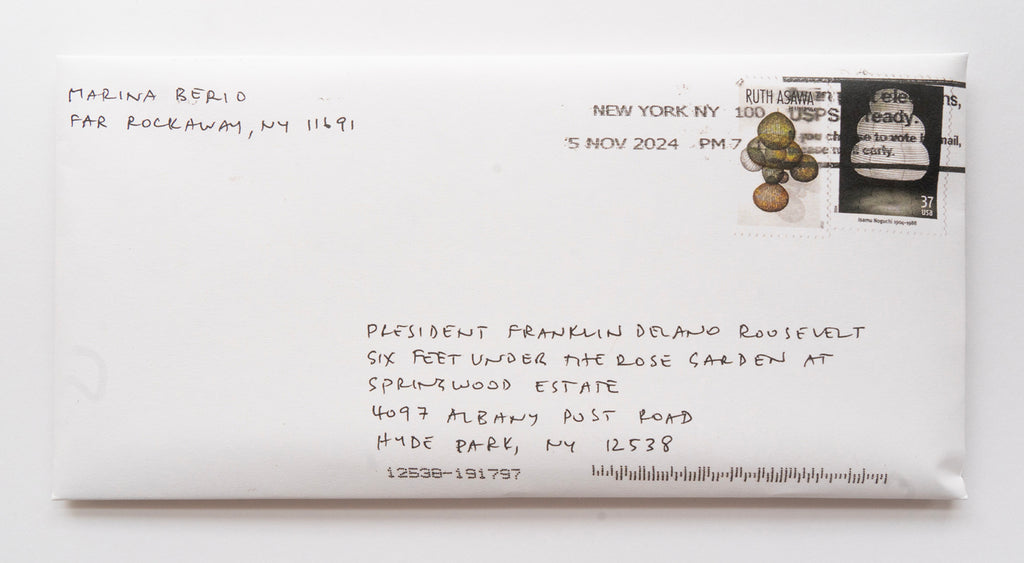 MARINA BERIO
FAR ROCKAWAY, NY 11691
NEW YORK NY 100
5 NOV 2024 PM 7
RUTH ASAWA
USPS ready.
to vote mail,
early.
37
USA
Isamu Noguchi 1904-1988
PRESIDENT FRANKLIN DELANO ROOSEVELT
SIX FEET UNDER THE ROSE GARDEN AT
SPRINGWOOD ESTATE
4097 ALBANY POST ROAD
HYDE PARK, NY 12538
12538-191797